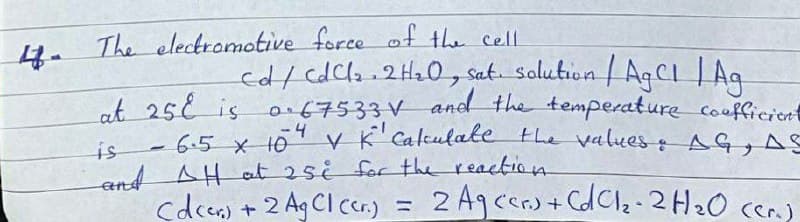 4- The electromotive force of the cell
Cd / CdCl₂ . 2H₂O, sat. solution / AgCl | Ag
at 25C is 0.67533 V and the temperature coefficient
is - 6.5 x 10⁻⁴ V K⁻¹ Calculate the values : ΔG, ΔS
and ΔH at 25c for the reaction
Cd(cr.) + 2 AgCl (cr.) = 2 Ag (cr.) + CdCl₂ - 2H₂O (cr.)